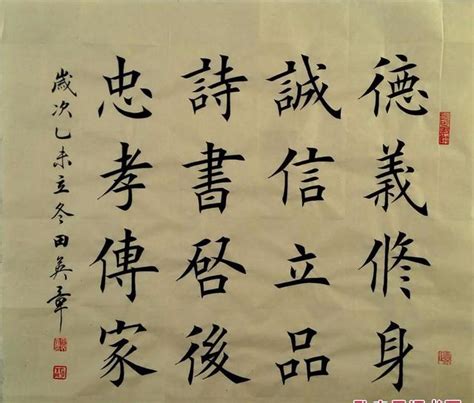 德義修身
誠信立品
詩書啓後
忠孝傳家
歲次乙未立冬田英章